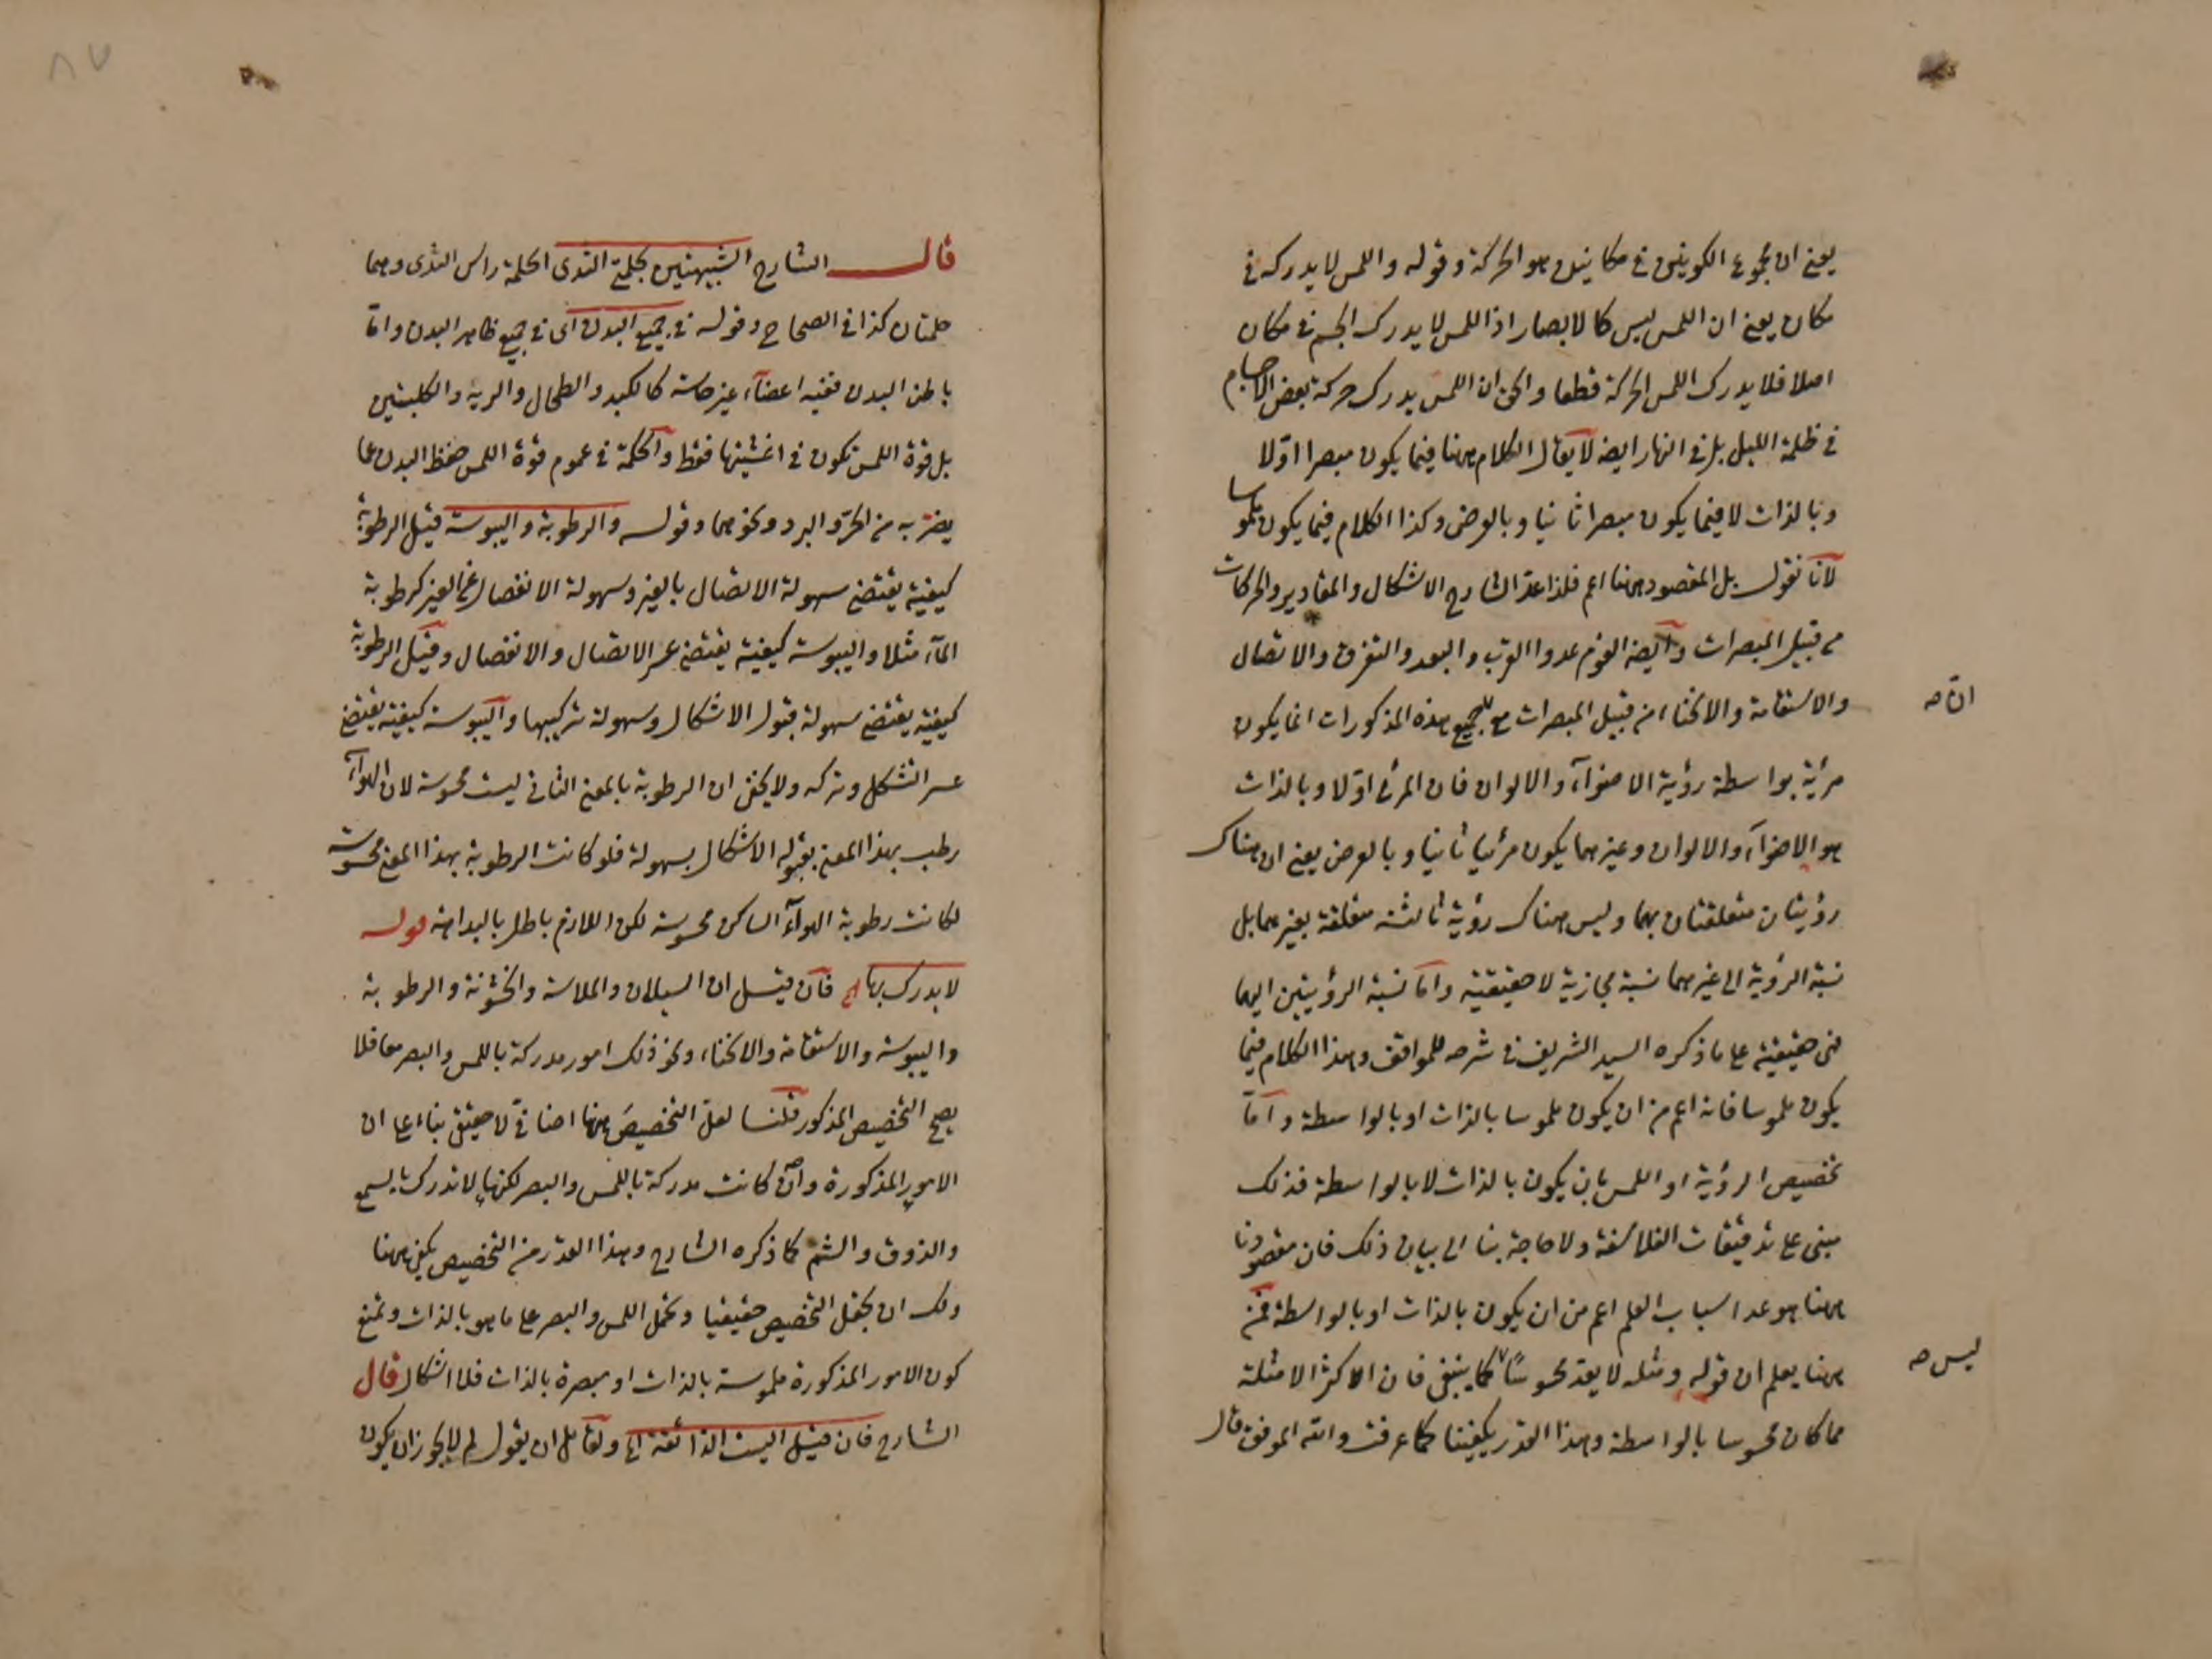 يعنى ان مجموع الكونين فى مكانين هو الحركة وقوله واللمس لا يدركه فى
مكان يعنى ان اللمس ليس كالابصار اذ اللمس لا يدرك الجسم فى مكان
اصلا فلا يدرك اللمس الحركة قطعا والحق ان اللمس يدرك حركة بعض الاجسام
فى ظلمة الليل بل فى النهار ايضا لا يقال الكلام ههنا فيما يكون مبصرا اولا
وبالذات لا فيما يكون مبصرا ثانيا وبالعرض وكذا الكلام فيما يكون ملموسا
لانا نقول بل المقصود ههنا اعم فلذا عد الشارح الاشكال والمقادير والحركات
من قبيل المبصرات وايضا القوم عدوا القرب والبعد والتفرق والاتصال
والاستقامة والانحناء من قبيل المبصرات مع جميع هذه المذكورات انما يكون
ان صح
مرئية بواسطة رؤية الاضوآء والالوان فان المرئى اولا وبالذات
هو الاضوآء والالوان وغيرهما يكون مرئيا ثانيا وبالعرض يعنى ان هناك
رؤيتان متعلقتان بهما وليس هناك رؤية ثالثة متعلقة بغيرهما بل
نسبة الرؤية الى غيرهما نسبة مجازية لا حقيقية واما نسبة الرؤيتين اليهما
فهى حقيقية على ما ذكره السيد الشريف فى شرحه للمواقف وهذا الكلام فيما
يكون ملموسا فانه اعم من ان يكون ملموسا بالذات او بالواسطة واما
تخصيص الرؤية او اللمس بان يكون بالذات لا بالواسطة فذلك
مبنى على تدقيقات الفلاسفة ولا حاجة بنا الى بيان ذلك فان مقصودنا
ههنا هو عد اسباب العلم اعم من ان يكون بالذات او بالواسطة فمن
ههنا يعلم ان قوله ومثله لا يعد محسوسا كما ينبغى فان اكثر الامثلة
ليس صح
مما كان محسوسا بالواسطة وهذا القدر يكفينا كما عرفت والله الموفق قال
٨٧
قال الشارح الشبيهتين بحلمتى الثدى الحلمة راس الثدى وهما
حلمتان كذا فى الصحاح وقوله فى جميع البدن اى فى جميع ظاهر البدن واما
باطن البدن ففيه اعضآء غير حاسة كالكبد والطحال والرية والكليتين
بل قوة اللمس تكون فى اغشيتها فقط والحكمة فى عموم قوة اللمس حفظ البدن عما
يضر به من الحر والبرد ونحوهما وقوله والرطوبة واليبوسة قيل الرطوبة
كيفية يقتضى سهولة الاتصال بالغير وسهولة الانفصال عن الغير كرطوبة
المآء مثلا واليبوسة كيفية يقتضى عسر الاتصال والانفصال وقيل الرطوبة
كيفية يقتضى سهولة قبول الاشكال وسهولة تركيبها واليبوسة كيفية يقتضى
عسر التشكل وتركه ولا يخفى ان الرطوبة بالمعنى الثانى ليست محسوسة لان الهوآء
رطب بهذا المعنى بقبوله الاشكال بسهولة فلو كانت الرطوبة بهذا المعنى محسوسة
لكانت رطوبة الهوآء الساكن محسوسة لكن اللازم باطل بالبداهة قوله
لا يدرك بها الخ فان قيل ان السيلان والملاسة والخشونة والرطوبة
واليبوسة والاستقامة والانحناء ونحو ذلك امور مدركة باللمس والبصر معا فلا
يصح التخصيص المذكور قلنا لعل التخصيص ههنا اضافى لا حقيقى بناء على ان
الامور المذكورة وان كانت مدركة باللمس والبصر لكنها لا تدرك بالسمع
والذوق والشم كما ذكره الشارح وهذا القدر من التخصيص يكفى ههنا
ولك ان تجعل التخصيص حقيقيا وتحمل اللمس والبصر على ما هو بالذات وتمنع
كون الامور المذكورة ملموسة بالذات او مبصرة بالذات فلا اشكال قال
الشارح فان قيل اليست الذائقة الخ ولقائل ان يقول لم لا يجوز ان يكون